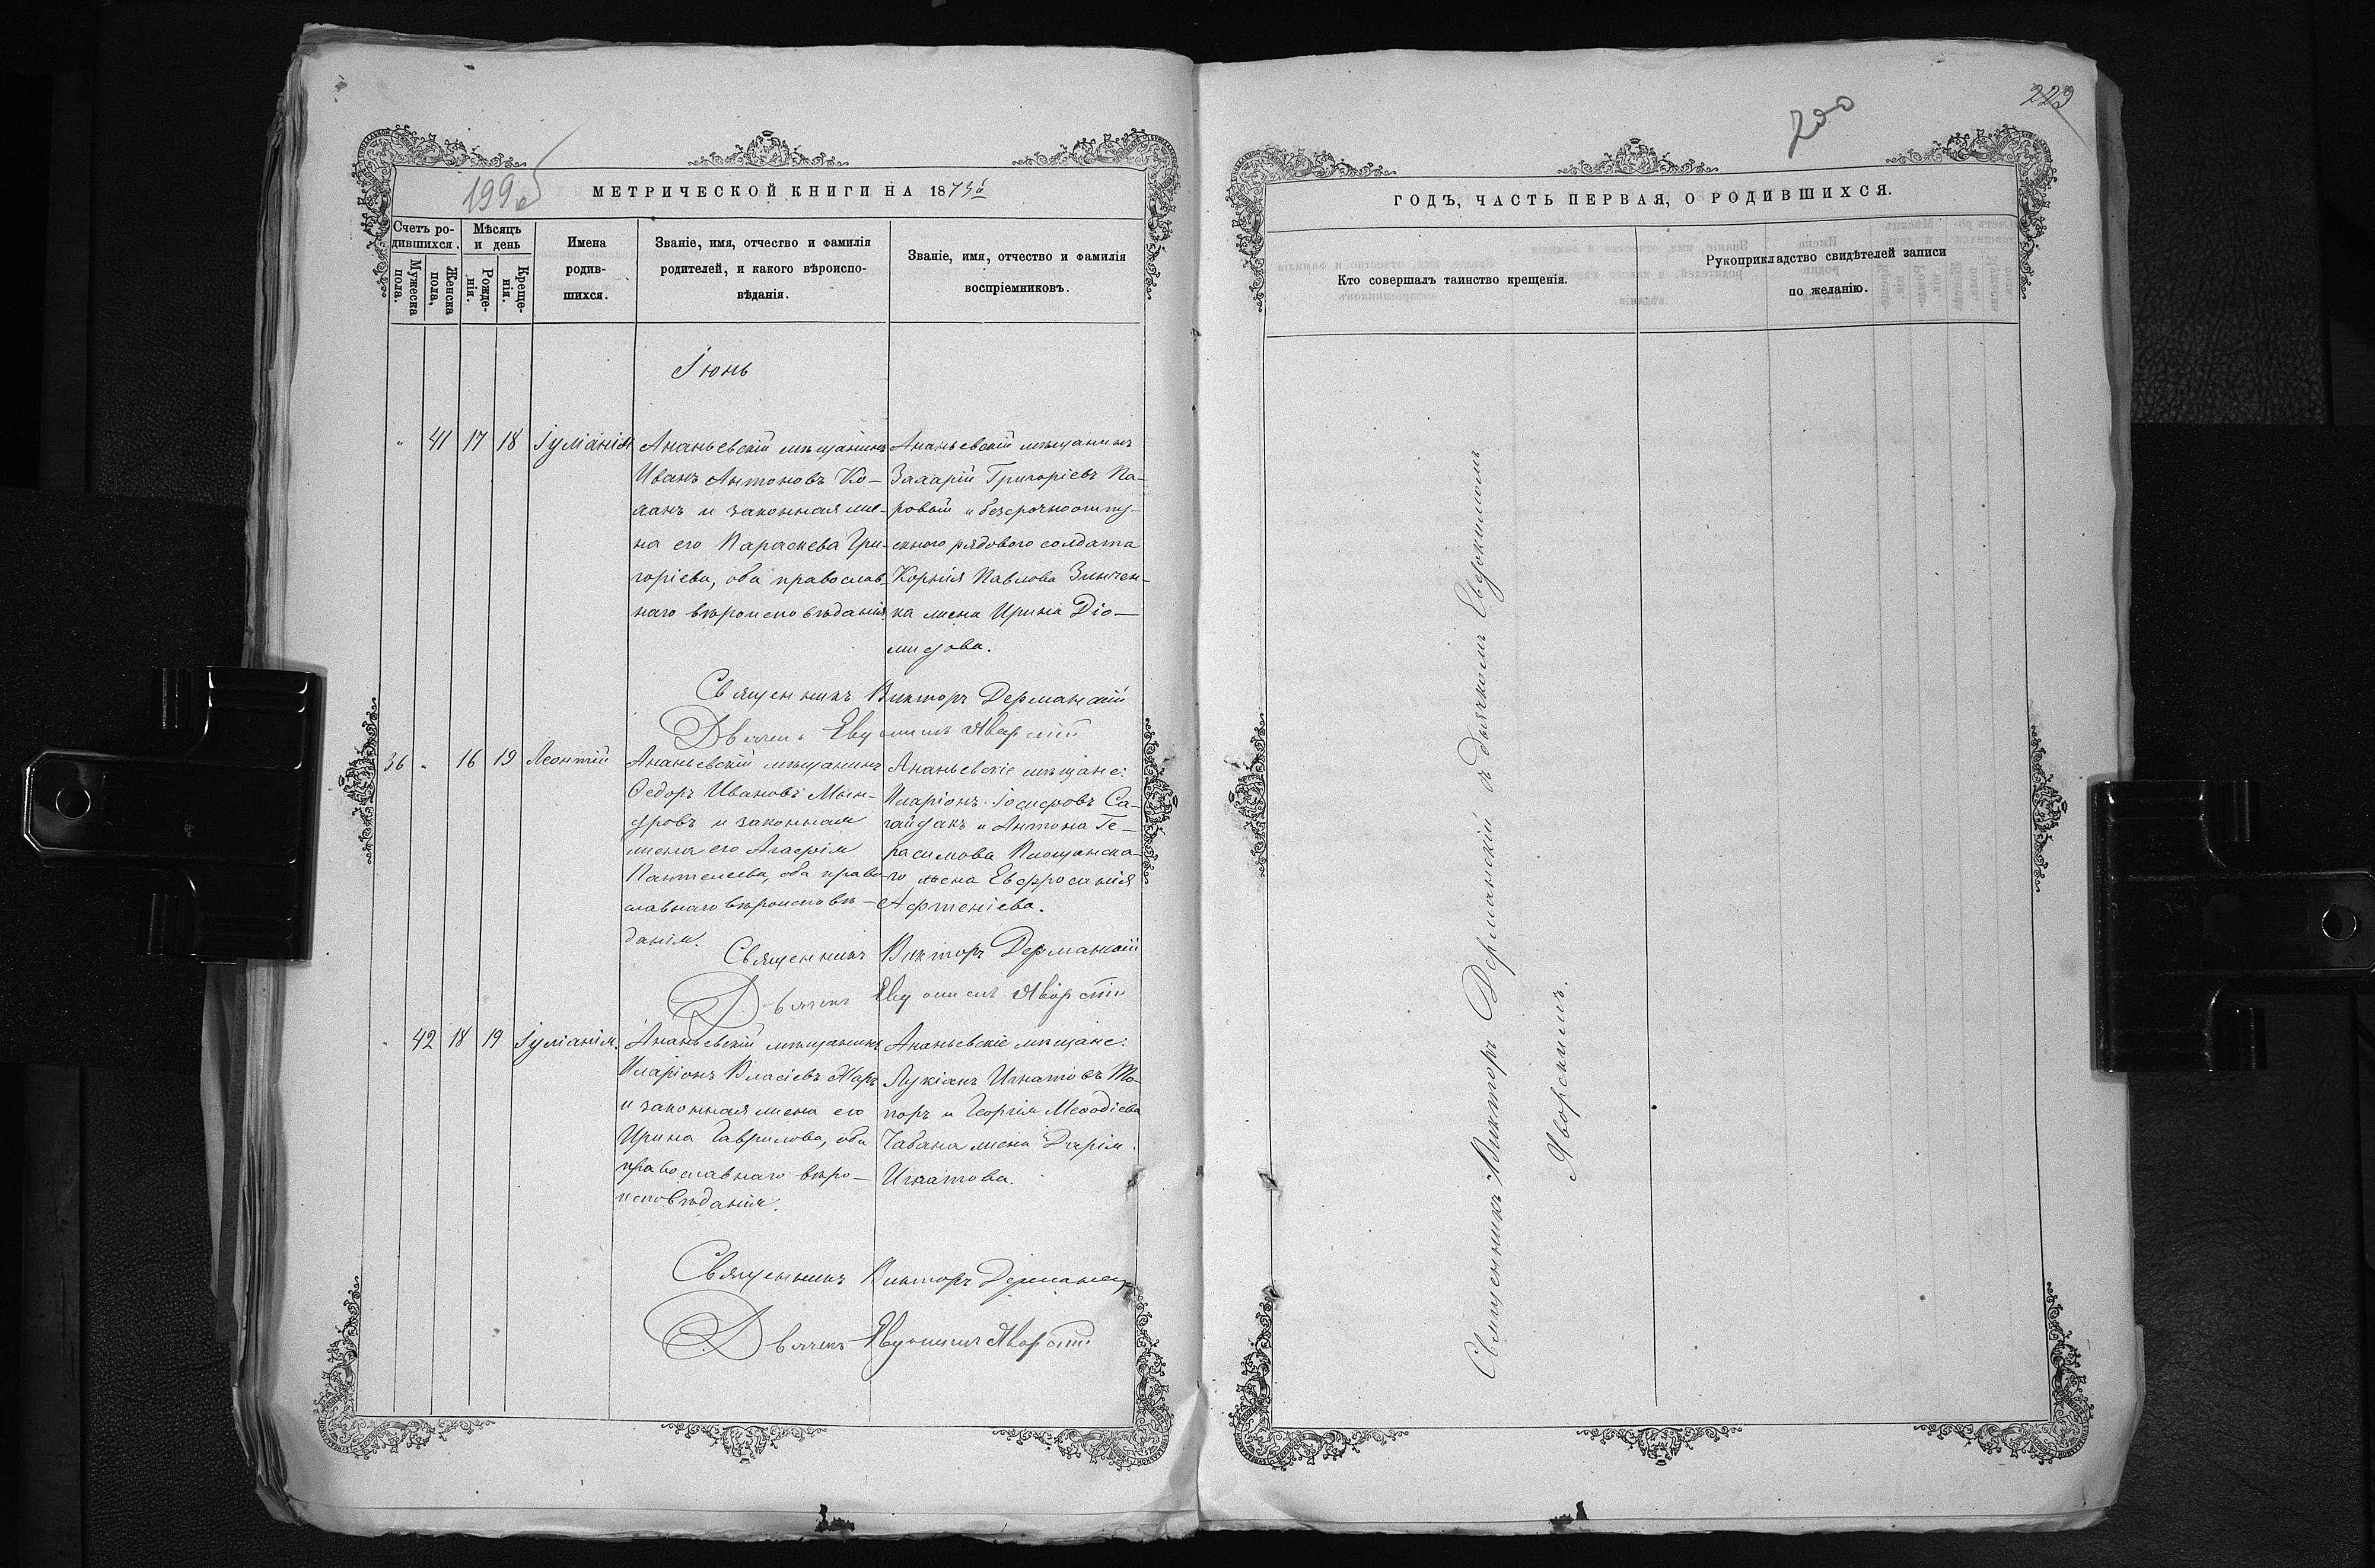 199 об
МЕТРИЧЕСКОЙ КНИГИ НА 187
Счетъ ро-
дившихся.
Мужеска
пола.
Женска
пола.
Мѣсяцъ
и день
Рожде-
нія.
Креще-
нія.
Имена
родив-
шихся.
Званіе, имя, отчество и фамилія
родителей, и какого вѣроиспо-
вѣданія.
Званіе, имя, отчество и фамилія
воспріемниковъ.
Іюнь
" 41 17 18 Іуліанія
Ананьевскій мѣщанинъ
Иванъ Антоновъ Ко-
ланъ и законная же-
на его Параскева Гри-
горіева, оба православ-
наго вѣроисповѣданія
Ананьевскій мѣщанинъ
Захарій Григоріевъ Па-
ровый и безсрочноотпу-
скного рядового солдата
Корнія Павлова Зинчен-
ка жена Ирина Діо-
мидова.
Священникъ Викторъ Дерманскій
Дьячекъ Евдокимъ Яворскій
36 " 16 19 Леонтій
Ананьевскій мѣщанинъ
Ѳедоръ Ивановъ Мын-
дровъ и законная
жена его Агафія
Пантелеева, оба право-
славнаго вѣроисповѣ-
данія.
Ананьевскіе мѣщане:
Иларіонъ Іосифовъ Са-
гайдакъ и Антона Ге-
расимова Площанска-
го жена Евфросинія
Артеніева.
Священникъ Викторъ Дерманскій
Дьячекъ Евдокимъ Яворскій
" 42 18 19 Іуліанія.
Ананьевскій мѣщанинъ
Иларіонъ Власіевъ Жаръ
и законная жена его
Ирина Гаврилова, оба
православнаго вѣро-
исповѣданія.
Ананьевскіе мѣщане:
Лукіанъ Игнатовъ То-
поръ и Георгія Меѳодіева
Чабана жена Дарія
Игнатова.
Священникъ Викторъ Дерманскій
Дьячекъ Евдокимъ Яворскій
223
200
ГОДЪ, ЧАСТЬ ПЕРВАЯ, О РОДИВШИХСЯ.
Кто совершалъ таинство крещенія.
Рукоприкладство свидѣтелей записи
по желанію.
Священникъ Викторъ Дерманскій съ дьячкомъ Евдокимомъ
Яворскимъ.